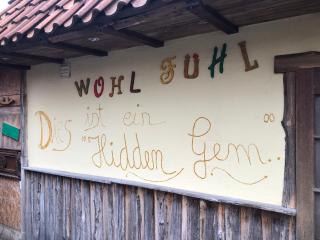 WOHL FÜHL
Dies ist ein
"Hidden Gem..